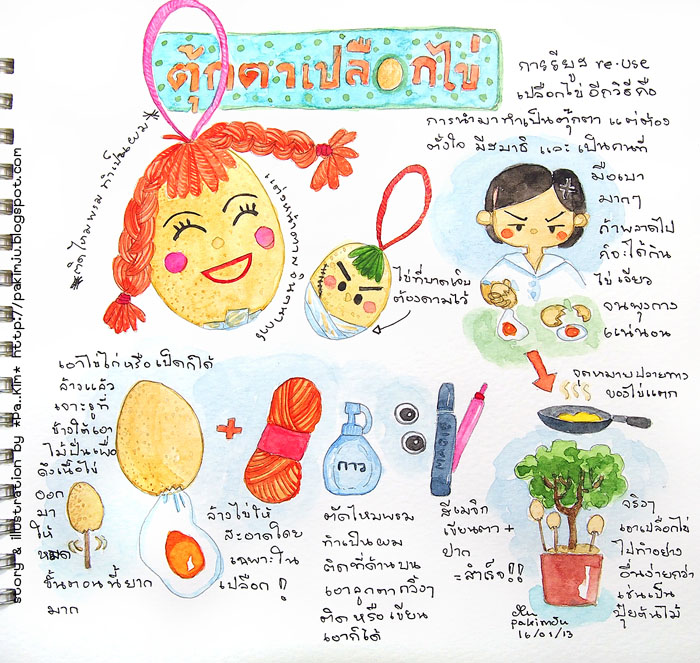 ตุ๊กตาเปลือกไข่
การรียูส re-use
เปลือกไข่ อีกวิธีคือ
การนำมาทำเป็นตุ๊กตา แต่ต้อง
ตั้งใจ มีสมาธิ และ เป็นคนที่
มือเบา
มากๆ
ถ้าพลาดไป
ก็จะได้กิน
ไข่เจียว
จนพุงกาง
แน่นอน
*ติดไหมพรม ทำเป็นผม*
แต่งหน้าตาม
ไข่ที่บาดเจ็บ
ต้องดามไว้
จุดหมายปลายทาง
ของไข่แตก
เอาไข่ไก่หรือเป็ดก็ได้
ล้างแล้ว
เจาะรูที่
ข้างใต้เอา
ไม้ปั่นเพื่อ
ดึงเนื้อไข่
ออก
มา
ให้
หมด
ขั้นตอนนี้ยาก
มาก
ล้างไข่ให้
สะอาดโดย
เฉพาะใน
เปลือก !
กาว
MAGIC
ตัดไหมพรม
ทำเป็นผม
ติดที่ด้านบน
เอาลูกตากวิ้งๆ
ติด หรือ เขียน
เอาก็ได้
สีเมจิก
เขียนตา +
ปาก
= สำเร็จ!!
จริงๆ
เอาเปลือกไข่
ไปทำอย่าง
อื่นง่ายกว่า
เช่นเป็น
ปุ๋ยต้นไม้
pakimju
16/01/13
story & illustration by *pa..kim* http://pakimju.blogspot.com